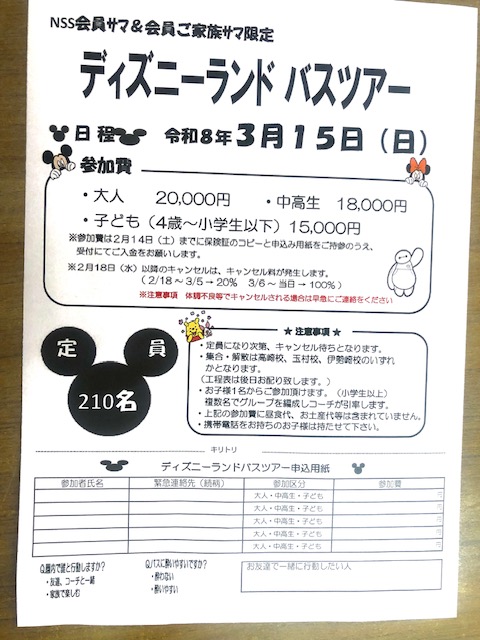 NSS会員サマ＆会員ご家族サマ限定
ディズニーランド バスツアー
日程 令和8年3月15日（日）
参加費
・大人 20,000円 ・中高生 18,000円
・子ども（4歳～小学生以下）15,000円
※参加費は2月14日（土）までに保険証のコピーと申込み用紙をご持参のうえ、
受付にてご入金をお願いします。
※2月18日（水）以降のキャンセルは、キャンセル料が発生します。
（ 2/18 ～ 3/5 → 20% 3/6 ～ 当日 → 100% ）
※注意事項 体調不良等でキャンセルされる場合は早急にご連絡をください
定員
210名
★ 注意事項 ★
・定員になり次第、キャンセル待ちとなります。
・集合・解散は高崎校、玉村校、伊勢崎校のいずれ
かとなります。
（工程表は後日お配り致します。）
・お子様1名からご参加頂けます。（小学生以上）
複数名でグループを編成しコーチが引率します。
・上記の参加費に昼食代、お土産代等は含まれていません。
・携帯電話をお持ちのお子様は持たせて下さい。
キリトリ
ディズニーランドバスツアー申込用紙
参加者氏名 緊急連絡先（続柄） 参加区分 参加費
大人・中高生・子ども 円
大人・中高生・子ども 円
大人・中高生・子ども 円
大人・中高生・子ども 円
大人・中高生・子ども 円
Q.園内で誰と行動しますか？
・友達、コーチと一緒
・家族で楽しむ
Q.バスに酔いやすいですか？
・酔わない
・酔いやすい
お友達で一緒に行動したい人